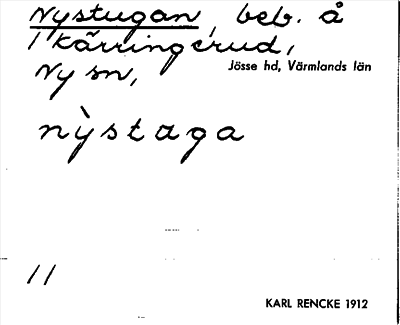 Nystugan, beb. å
1/ Kärringerud,
Ny sn, Jösse hd, Värmlands län
nỳstaga
11
KARL RENCKE 1912